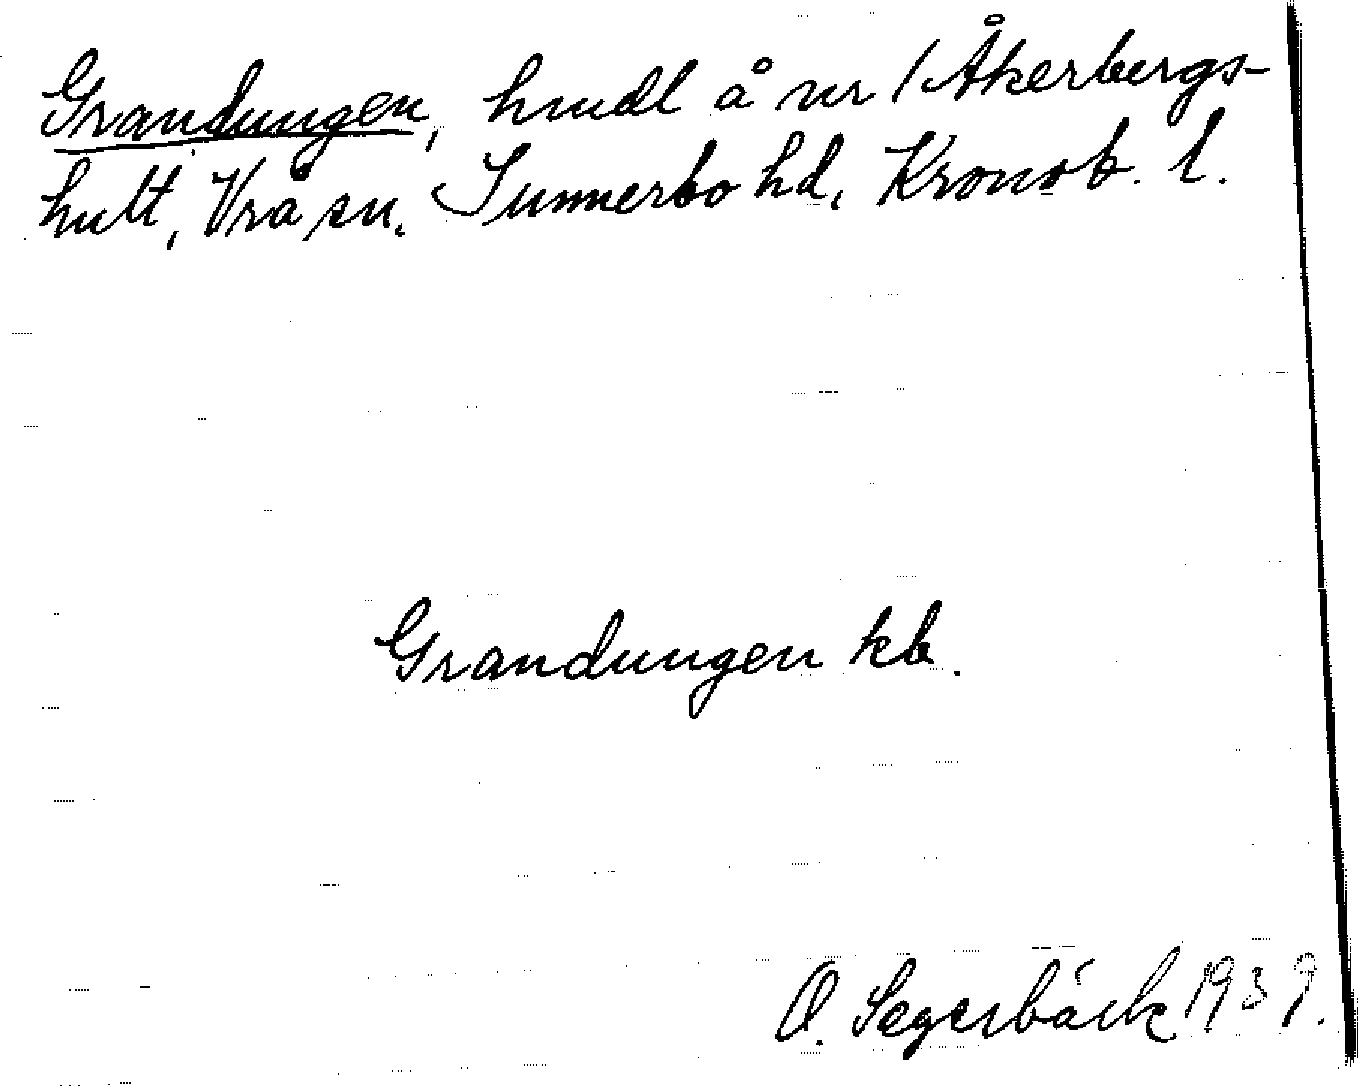 Grandungen, hmdl å nr 1 Åkerbergs-
hult, Vrå sn. Sunnerbo hd, Kronob. l.
Grandungen kb.
O. Segerbäck 1939.